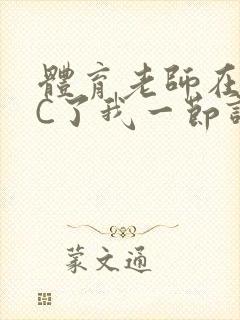 體育老師在
C了我一節
蒙文通